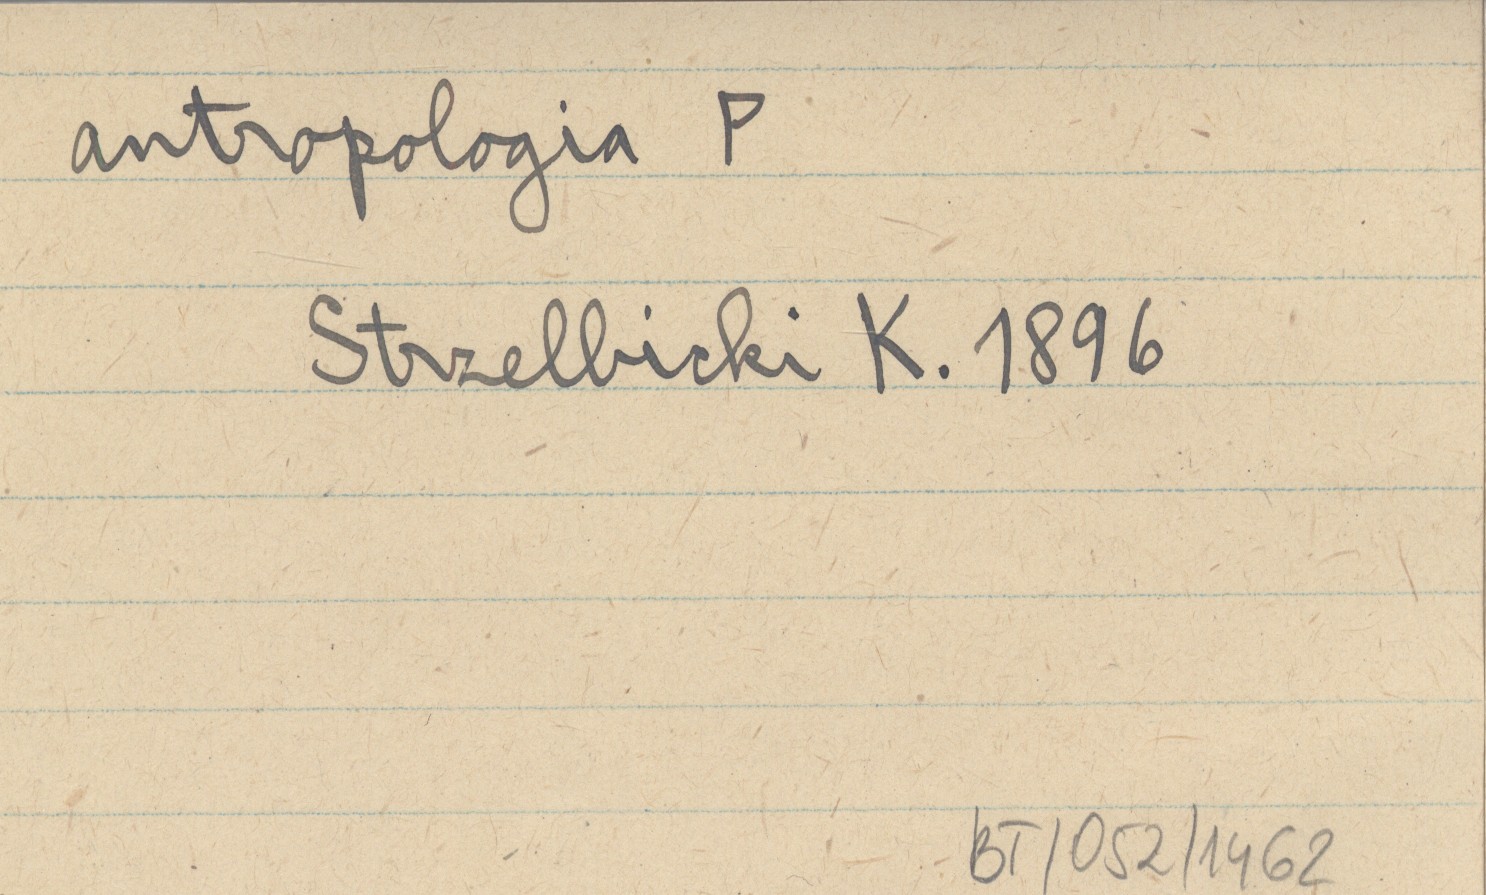 antropologia P
Strzelbicki K. 1896
BT/052/1462